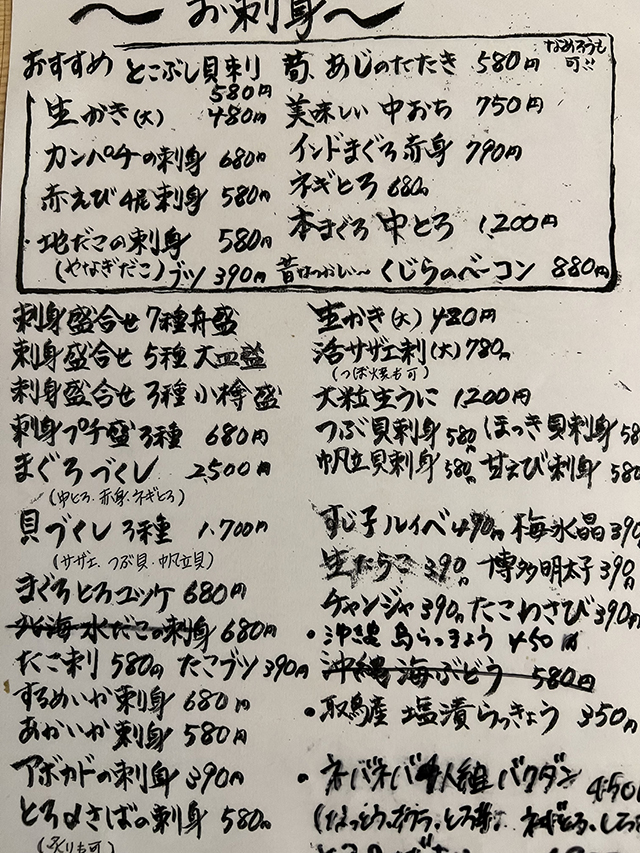 〜お刺身〜
おすすめ とこぶし貝刺 580円
生かき(大) 480円
カンパチの刺身 680円
赤えび 刺身 580円
・地だこの刺身 580円
(やなぎだこ)ブツ 390円
あじのたたき 580円 なめろうも可!!
美味しい 中おち 750円
インドまぐろ赤身 790円
ネギとろ 680円
本まぐろ 中とろ 1,200円
昔なつかしい〜 くじらのベーコン 880円
刺身盛合せ 7種舟盛
刺身盛合せ 5種 大皿盛
刺身盛合せ 3種 小樽盛
刺身プチ盛3種 680円
まぐろづくし 2,500円
(中とろ、赤身、ネギとろ)
貝づくし 3種 1,700円
(サザエ、つぶ貝、帆立貝)
まぐろとろユッケ 680円
北海水だこの刺身 680円
たこ刺 580円 たこブツ 390円
するめいか刺身 680円
あかいか刺身 580円
アボカドの刺身 390円
とろ〆さばの刺身 580円
(炙りも可)
生かき(大) 480円
活サザエ刺(大) 780円
(つぼ焼も可)
大粒生うに 1,200円
つぶ貝刺身 580円 ほっき貝刺身 58
帆立貝刺身 580円 甘えび刺身 58
すじ子ルイベ 490円 梅水晶 390
生たらこ 390円 博多明太子 390円
チャンジャ 390円 たこわさび 390円
・沖縄 島らっきょう 450円
沖縄 海ぶどう 580円
・鳥産 塩漬らっきょう 350円
・ネバネバ 人組 バクダン 450
(なっとう、オクラ、とろ ネギとろ、